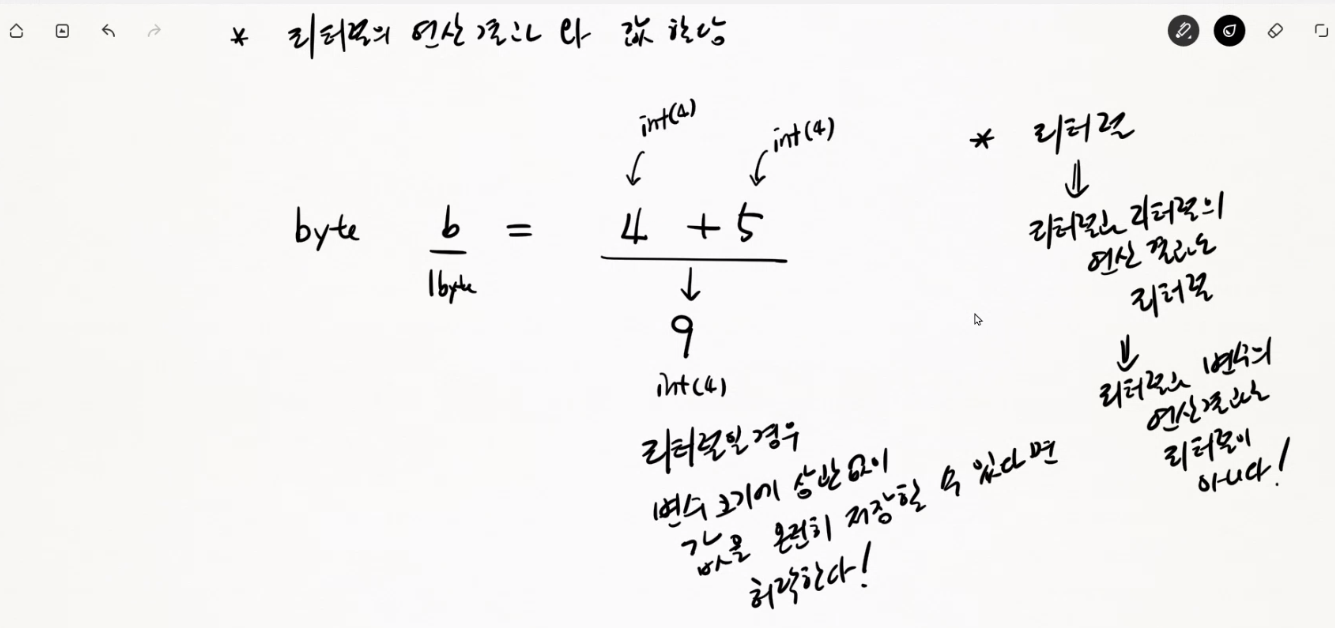 * 리터럴의 연산 결과와 값 할당
int(4)
int(4)
byte b = 4 + 5
1byte
9
int(4)
리터럴일 경우
변수 크기에 상관 없이
값을 온전히 저장할 수 있다면
허락한다!
* 리터럴
리터럴과 리터럴의
연산 결과는
리터럴
리터럴과 변수의
연산결과는
리터럴이
아니다!